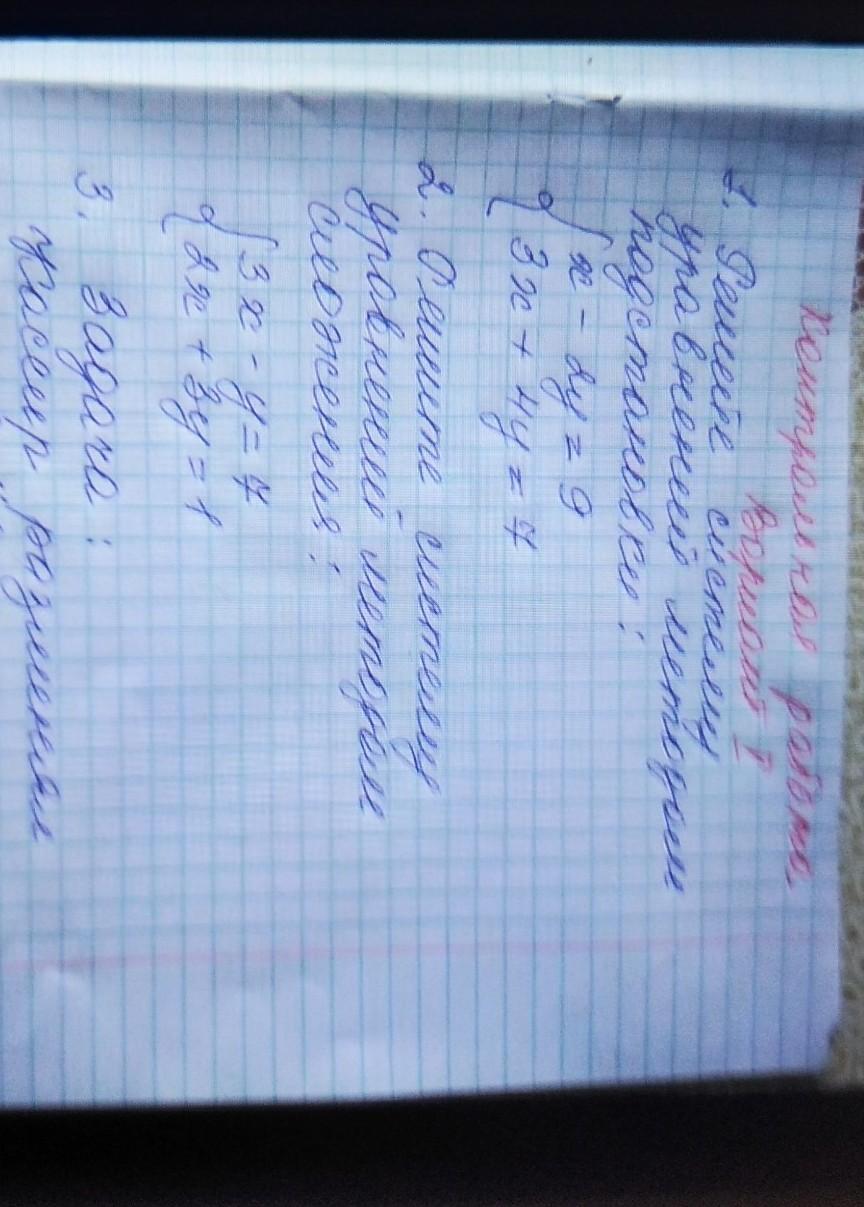 Контрольная работа.
Вариант I
1. Решите систему
уравнений методом
подстановки:
x - 2y = 9
3x + 4y = 7
2. Решите систему
уравнений методом
сложения:
3x - y = 7
2x + 3y = 1
3. Задача:
Кассир разменял